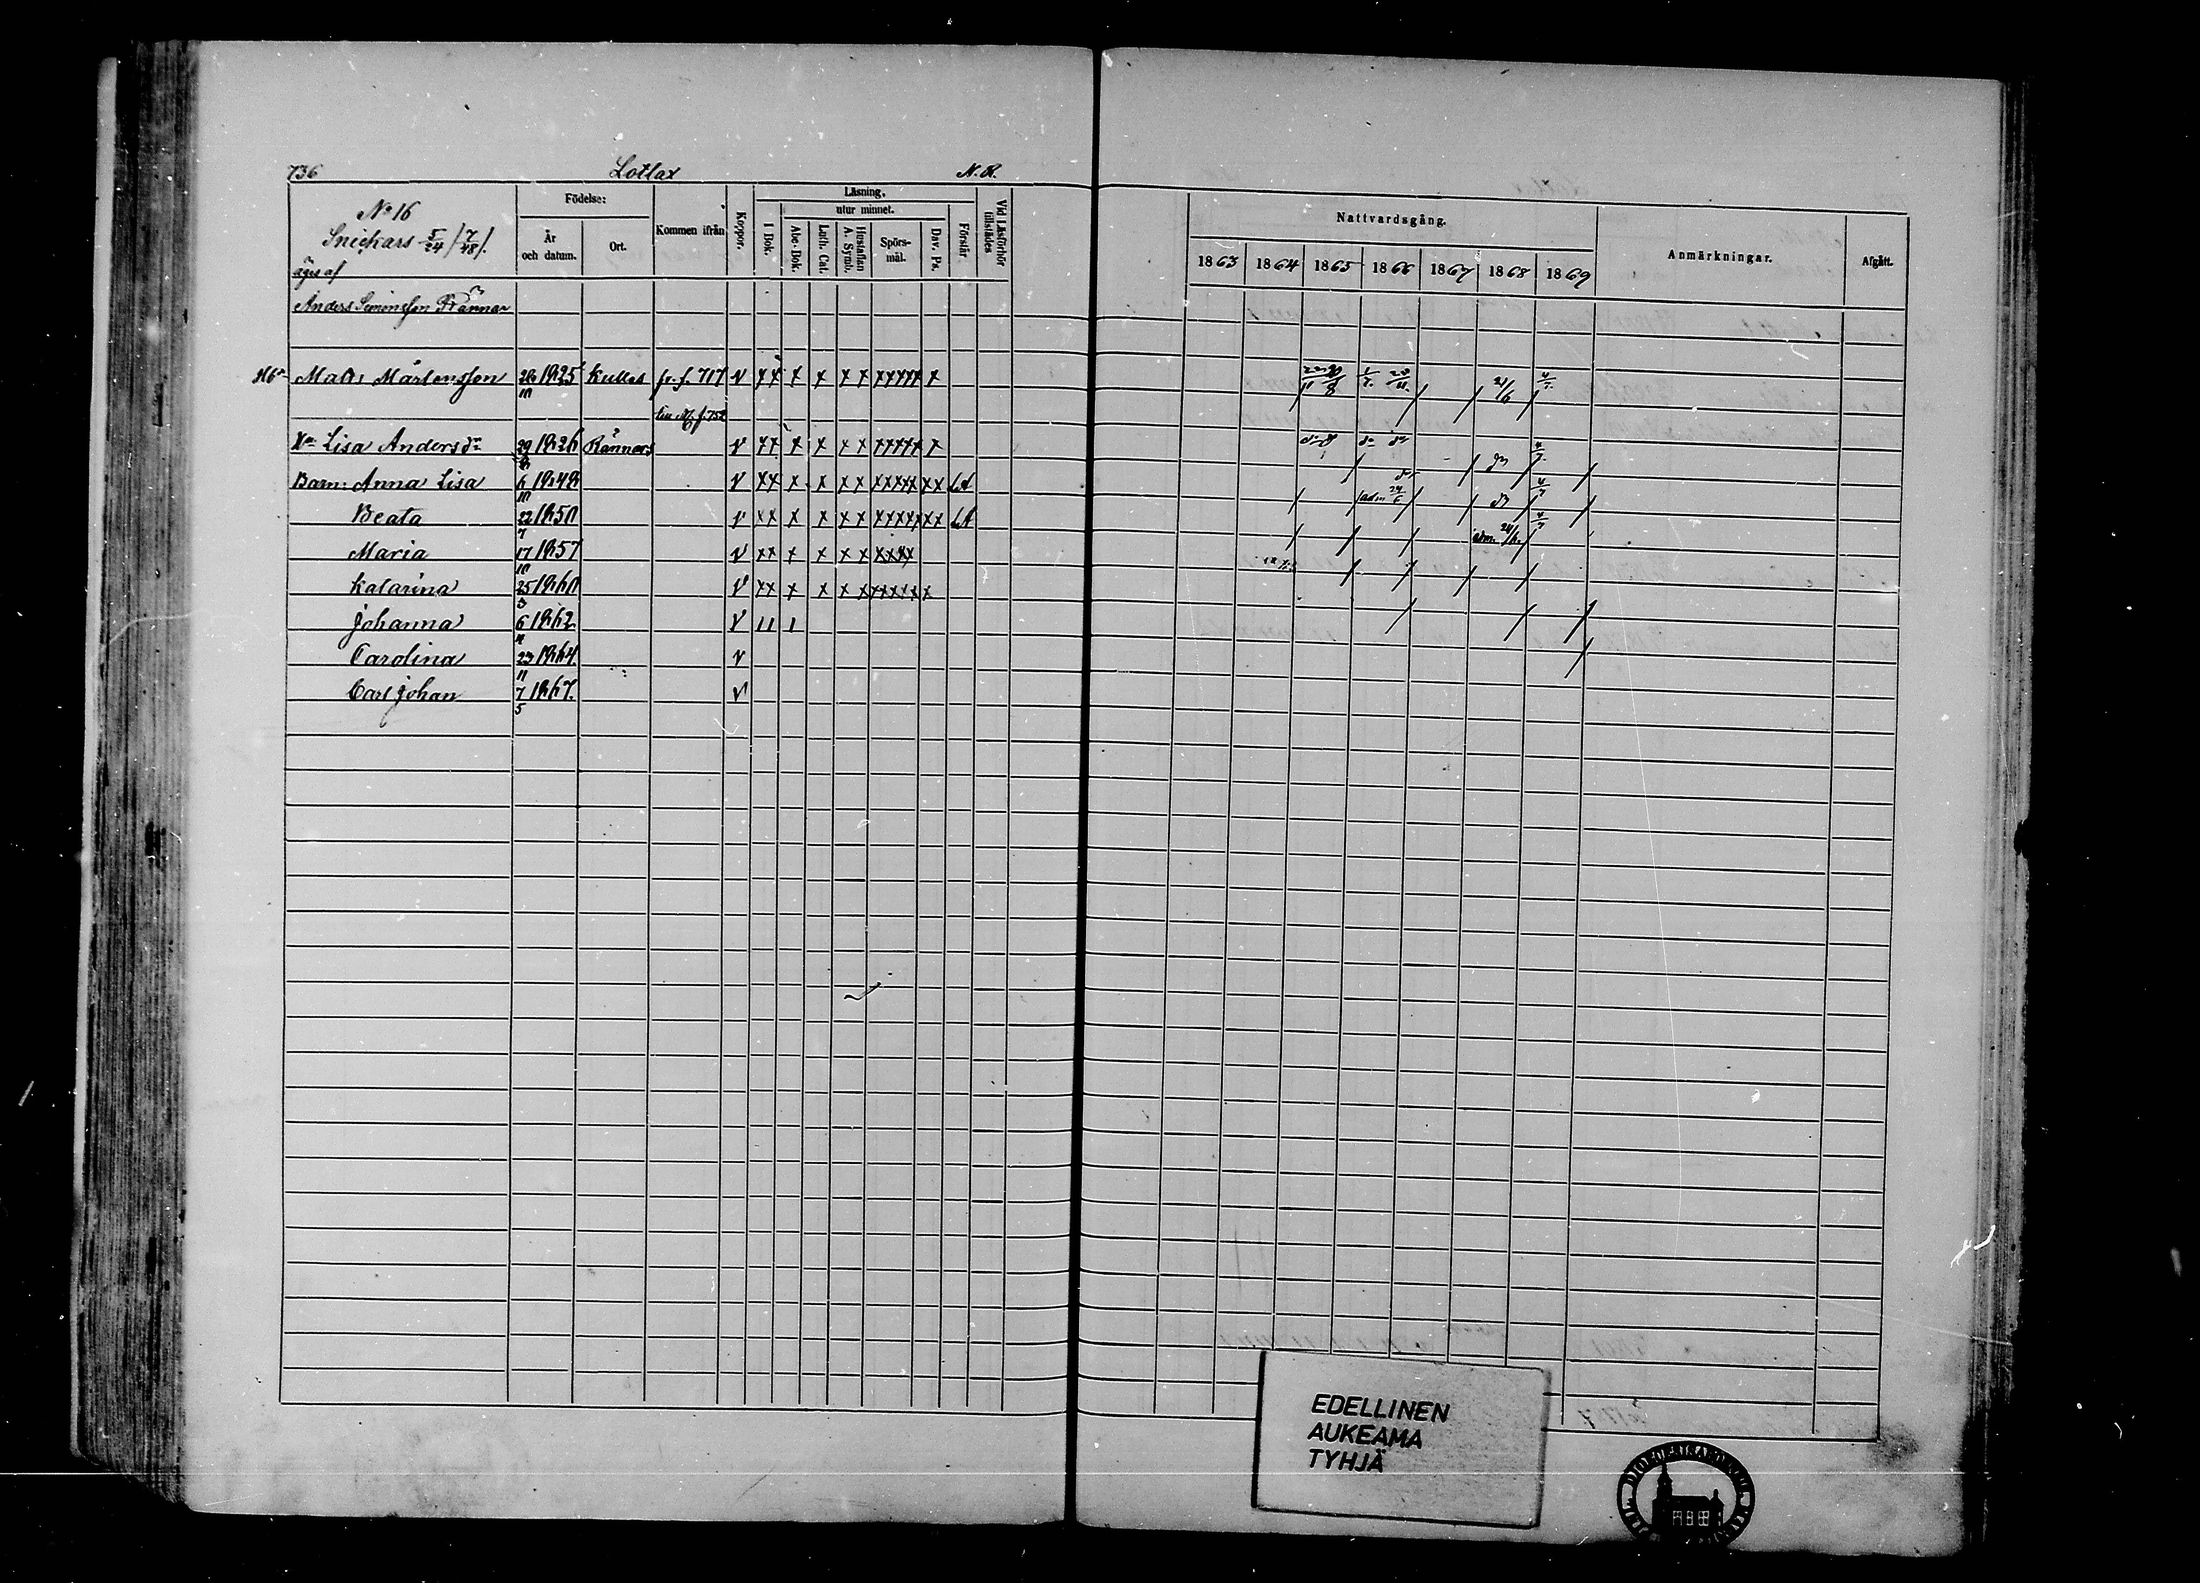 736 Lotlax N. R.
No 16
Snickars 5/24 / 7/48 /.
äges af
Anders Simonsson Rännar
Födelse:
År och datum.
Ort.
Kommen ifrån
Koppor.
Läsning.
I Bok.
utur minnet.
Abc-Bok.
Luth. Cat.
Hustaflan A. Symb.
Spörsmål.
Dav. Ps.
Förstår.
Vid Läsförhör tillstädes
Nattvardsgång.
1863 1864 1865 1866 1867 1868 1869
Anmärkningar.
Afgått.
Matts Mårtensson 26/10 1825 Kulles fr. f. 717 v x x x x x x xxxxx x
Hu Lisa Andersdr 29 1826 Rännars v x x x x x x xxxxx x
Barn: Anna Lisa 6/10 1848 v x x x x x x xxxxx x x LA
Beata 22/7 1850 v x x x x x x xxxxx x x LA
Maria 17/10 1857 v x x x x x x xxxx
Katarina 25/3 1860 v x x x x x x xxxxx x
Johanna 6 1862 v 11 1
Carolina 23/11 1864. v
Carl Johan 7/5 1867. v
EDELLINEN
AUKEAMA
TYHJÄ